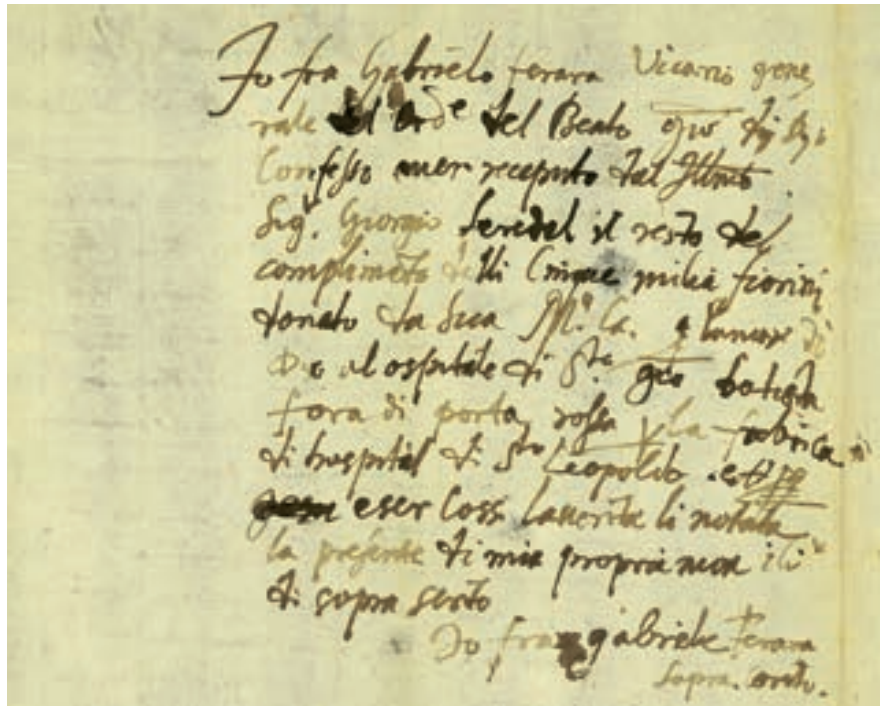 Io fra Gabriele ferara Vicario gene
rale del ord^e del Beato gio di
Confesso auer receputo dal Illmo
Sig.^r Giorgio il resto del
complimeto delli Cinque milia fiorini
donato da Sua M.^a Ca. a lamore di
Dio al ospitale di S^to gio batista
fora di porta rossa la fabrica
di hospital di S^to Leopoldo
eser Cossi lauerita li notata
la presente di mia propria man
di sopra scrito
Io fra gabriele Ferara
sopra. scrito.